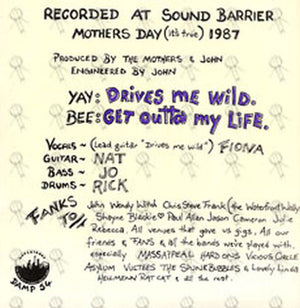 RECORDED AT SOUND BARRIER
MOTHERS DAY (it's true) 1987
PRODUCED BY THE MOTHERS & JOHN
ENGINEERED BY JOHN
YAY: DRIVES ME WILD.
BEE: GET OUTTA MY LIFE.
VOCALS ~ (Lead guitar "Drives me wild") FIONA
GUITAR~ NAT
BASS ~ JO
DRUMS~ RICK
FANKS TO//
John Wendy Chris Steve Frank (the Waterfront Wally)
Shayne Blackie Paul Allan Jason Cameron Julie
Rebecca. All venues that gave us gigs. All our
friends & FANS & all the bands we've played with,
especially MASSAPPEAL HARD ONS VICIOUS CIRCLE
ASYLUM THE SPUNKBUBBLES & Lovely Lings
HELLMENN RAT CAT & all the rest.
WATERFRONT
DAMP 54